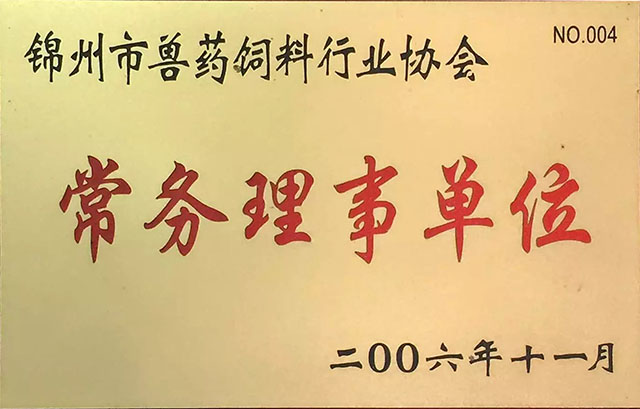 锦州市兽药饲料行业协会
NO.004
常务理事单位
二00六年十一月